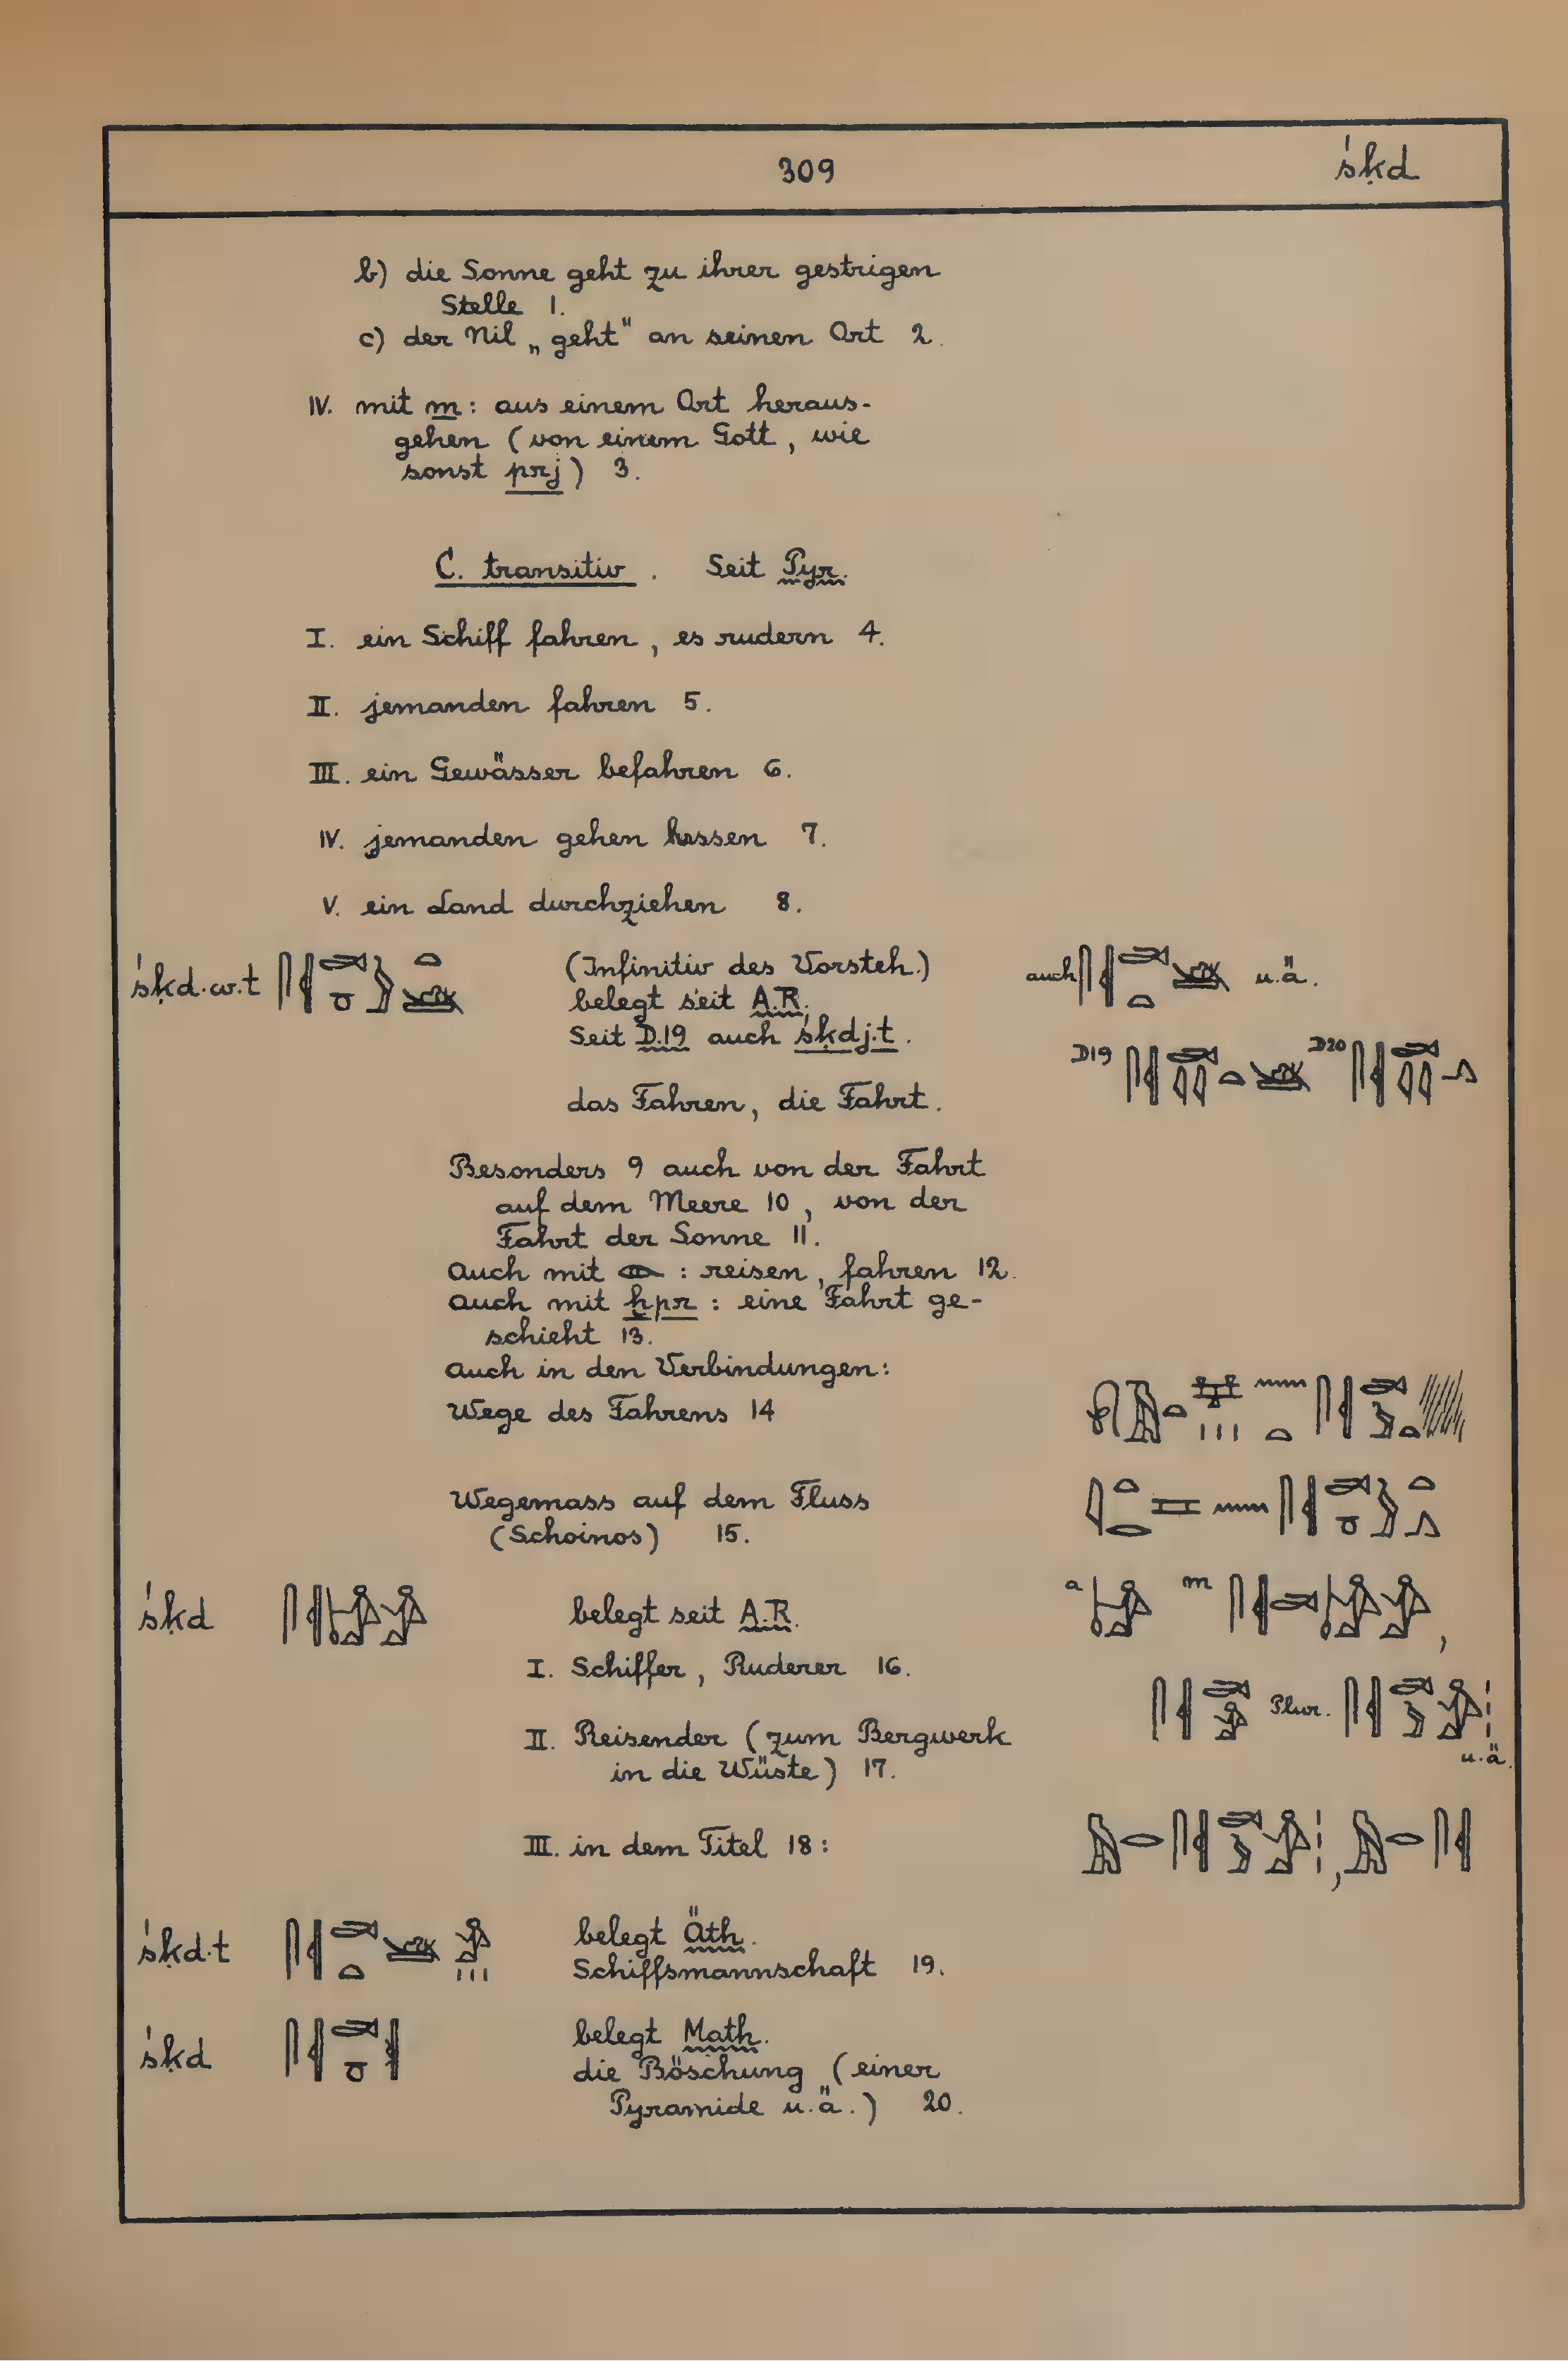 309 śḳd
b) die Sonne geht zu ihrer gestrigen
Stelle 1.
c) der Nil „geht" an seinen Ort 2.
IV. mit m: aus einem Ort heraus-
gehen (von einem Gott, wie
sonst prj) 3.
C. transitiv. Seit Pyr.
I. ein Schiff fahren, es rudern 4.
II. jemanden fahren 5.
III. ein Gewässer befahren 6.
IV. jemanden gehen lassen 7.
V. ein Land durchziehen 8.
śḳd.w.t (Infinitiv des Vorsteh.) auch u.ä.
belegt seit A.R.
Seit D.19 auch śḳdj.t. D19 D20
das Fahren, die Fahrt.
Besonders 9 auch von der Fahrt
auf dem Meere 10, von der
Fahrt der Sonne 11.
Auch mit 𓁹 : reisen, fahren 12.
Auch mit ḫpr : eine Fahrt ge-
schieht 13.
Auch in den Verbindungen:
Wege des Fahrens 14
Wegemass auf dem Fluss
(Schoinos) 15.
śḳd belegt seit A.R. a m ,
I. Schiffer, Ruderer 16. Plur.
u.ä.
II. Reisender (zum Bergwerk
in die Wüste) 17.
III. in dem Titel 18: ,
śḳd.t belegt Äth.
Schiffsmannschaft 19.
śḳd belegt Math.
die Böschung (einer
Pyramide u.ä.) 20.